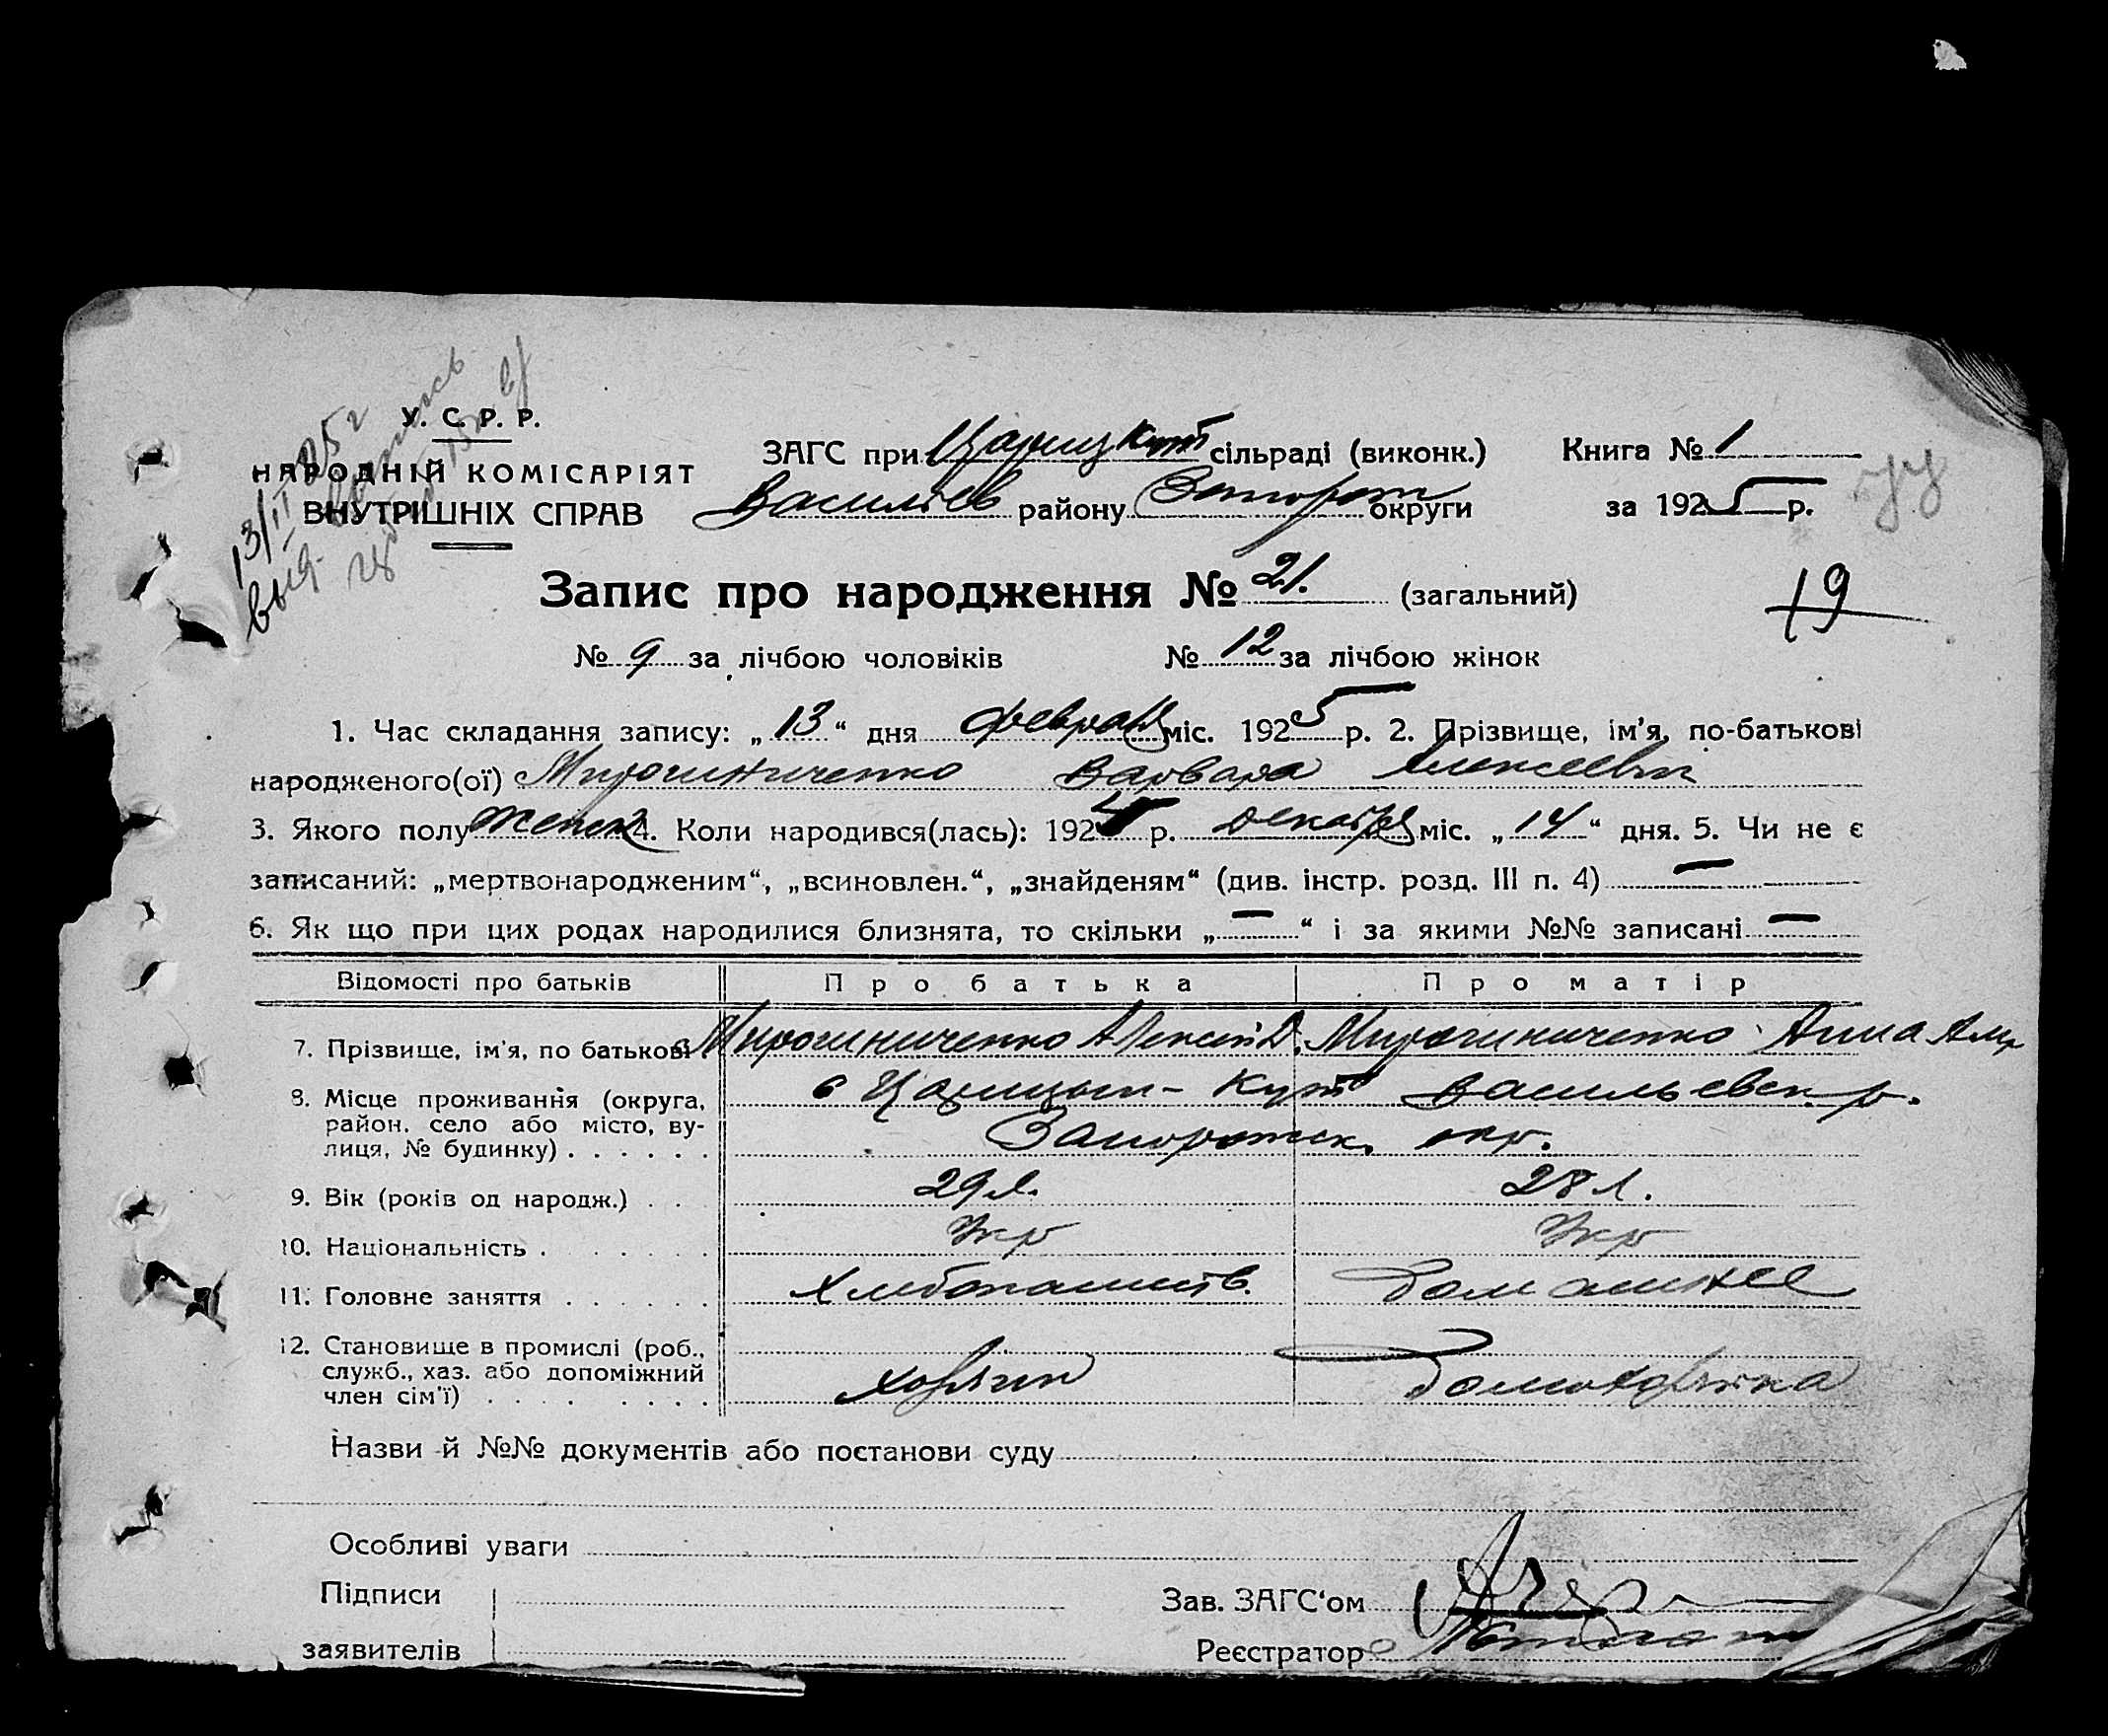 13/II 25 г
выд. выпись
У. С. Р. Р.
НАРОДНІЙ КОМІСАРІЯТ
ВНУТРІШНІХ СПРАВ
ЗАГС при Царицкут сільраді (виконк.)
Василів району Запорож округи
Книга № 1
за 1925 р.
19
Запис про народження № 21. (загальний)
№ 9 за лічбою чоловіків № 12 за лічбою жінок
1. Час складання запису: „13“ дня февраля міс. 1925 р. 2. Прізвище, ім’я, по-батькові
народженого(ої) Мирошниченко Варвара Алексеевн
3. Якого полу женск 4. Коли народився(лась): 1924 р. декабря міс. „14“ дня. 5. Чи не є
записаний: „мертвонародженим“, „всиновлен.“, „знайденям“ (див. інстр. розд. III п. 4) —
6. Як що при цих родах народилися близнята, то скільки „—“ і за якими №№ записані —
Відомості про батьків Про батька Про матір
7. Прізвище, ім’я, по батькові Мирошниченко Алексей Д. Мирошниченко Анна
8. Місце проживання (округа, с Царицын-Кут Васильевск. р.
район, село або місто, ву-
лиця, № будинку) . . . . . . Запорожск. окр.
9. Вік (років од народж.) . . 29 л. 28 л.
10. Національність . . . . . . . Укр Укр
11. Головне заняття . . . . . . Хлебопашетв. Домашнее
12. Становище в промислі (роб.,
служб., хаз. або допоміжний хозяин домохозяйка
член сім’ї) . . . . . . . .
Назви й №№ документів або постанови суду
Особливі уваги
Підписи
Зав. ЗАГС‘ом
заявителів
Реєстратор